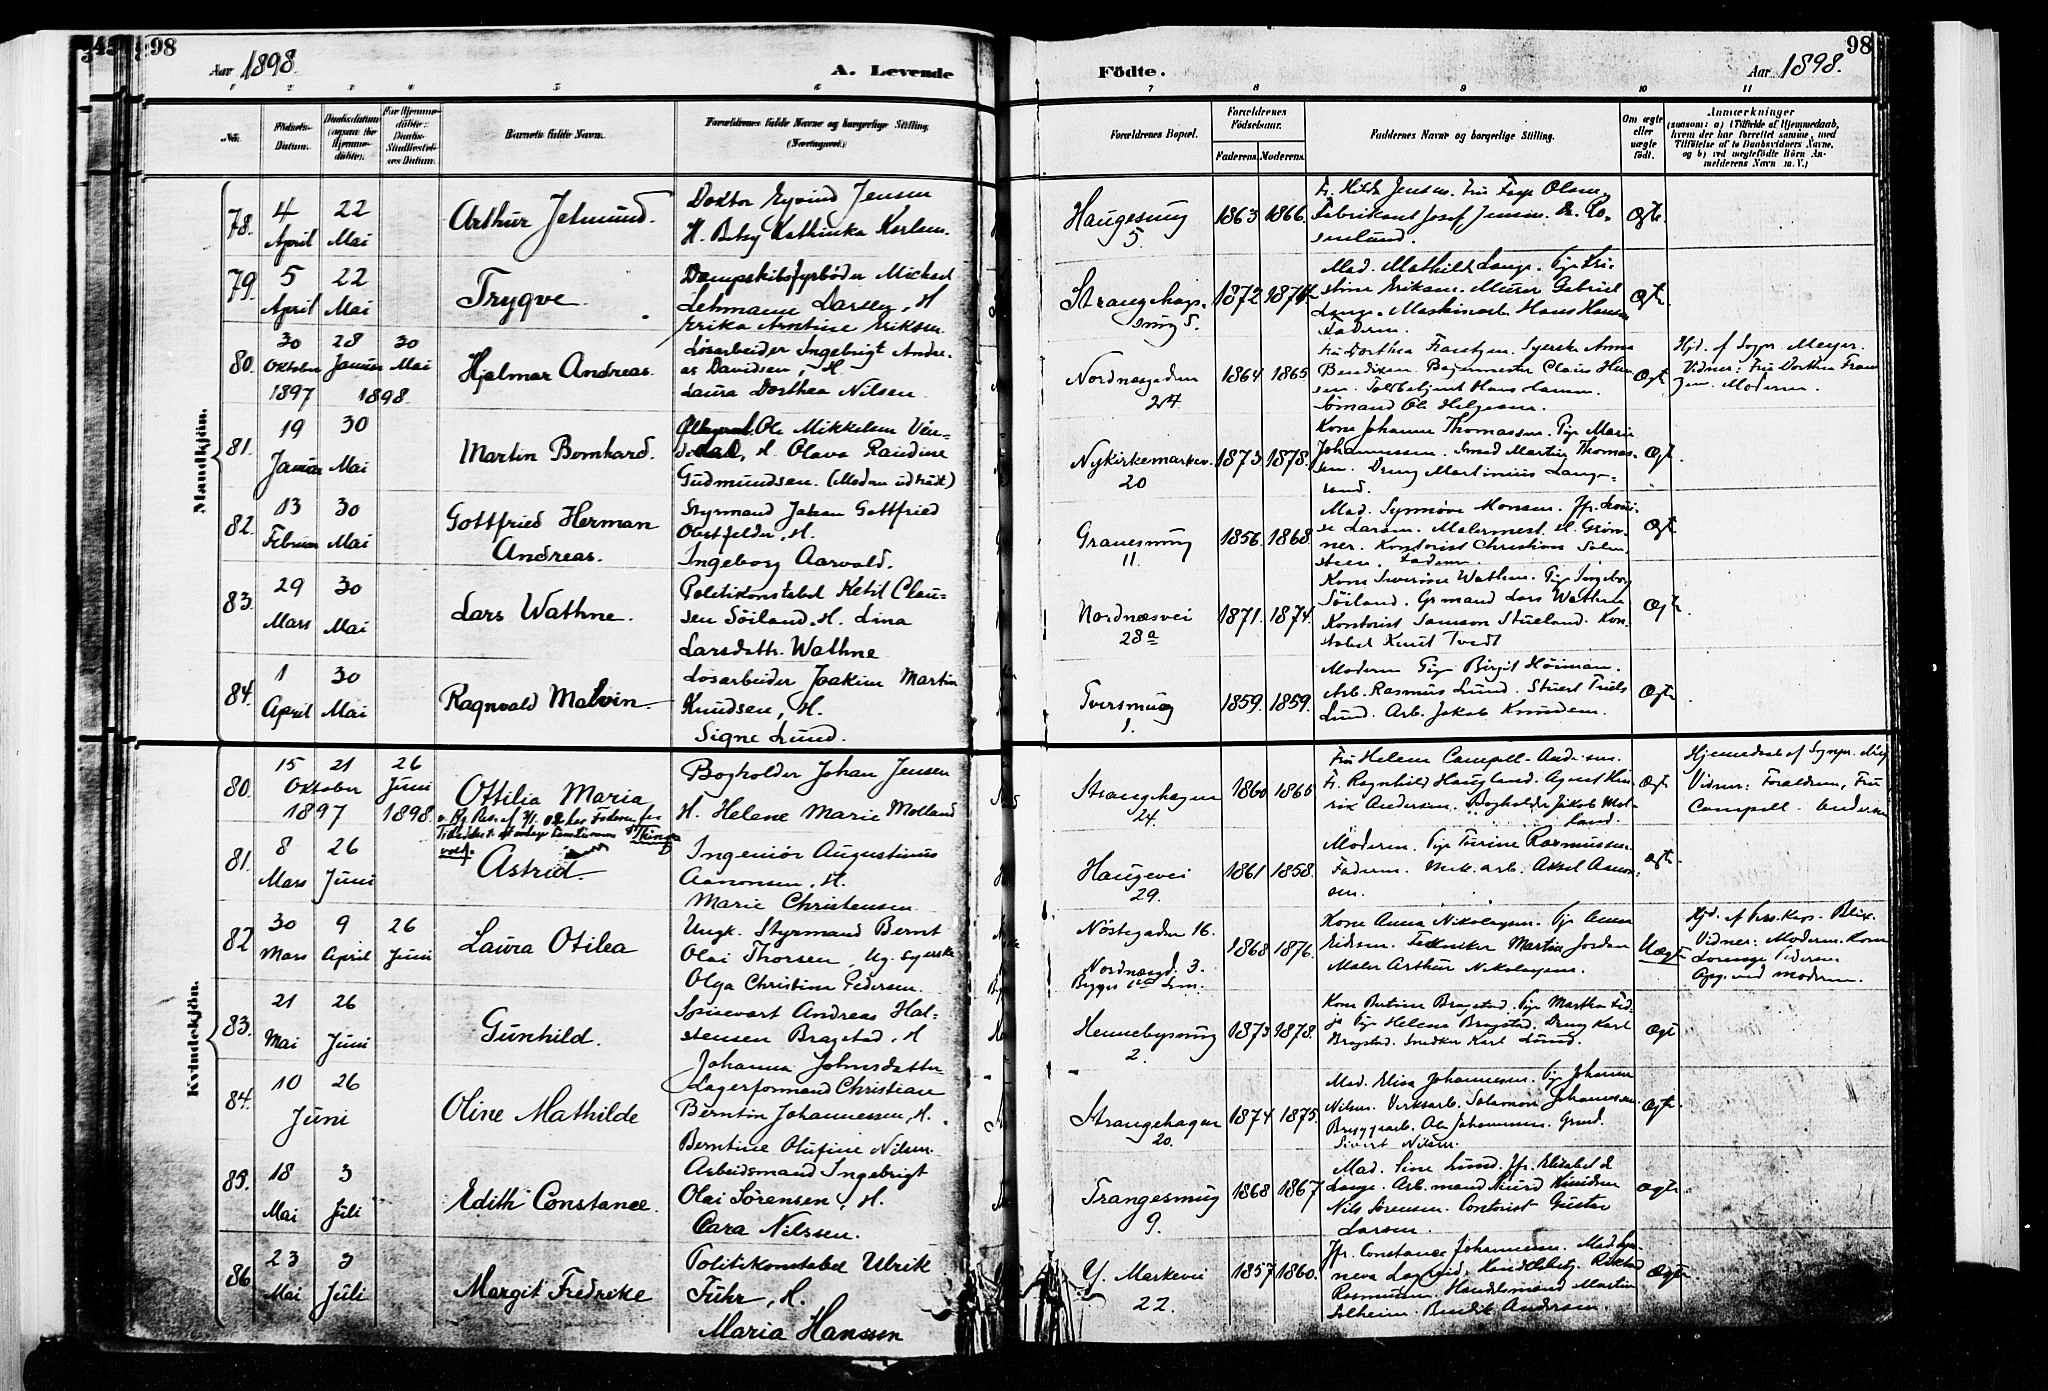 98
Aar 1898.
A. Levende
Födte.
Aar 1898.
98
1 2 3 4 5 6
7 8 9 10 11
No.
Födsels-Datum.
Barnets fulde Navn.
Forældrenes fulde Navne og borgerlige Stilling.
(Næringsvei.)
Forældrenes Bopæl.
Forældrenes Födselsaar.
Faderens. Moderens.
Faddernes Navne og borgerlige Stilling.
Om ægte eller uægte födt.
Anmærkninger
(saasom: a) i Tilfælde af Hjemmedaab,
hvem der har forrettet samme, med
Tilföielse af to Daabsvidners Navne,
og b) ved uægtefödte Börn An-
melderens Navn m. V.)
Mandkjön.
78. 4 April 22 Mai
Arthur Jelmund.
Doktor Eyvind Jensen
H. Betsy Kathinka Karlsen.
Haugesmug
5.
1863 1866.
Fr. Hilda Jensen. Fru
Olsen.
Fabrikant Josef Jensen.
Ægte.
79. 5 April 22 Mai
Trygve.
Dampskibsfyrböder Michael
Lehmann Larsen, H
Erika Arntine Eriksen.
Strangehags-
smug 5.
1872 1874.
Mad. Mathilde Lange.
Murer Gabriel
Lange. Maskinarb. Hans Hansen
Faderen.
Ægte.
80. 30 Oktober 1897 28 Januar 30 Mai 1898.
Hjalmar Andreas.
Lösarbeider Ingebrigt Andre-
as Davidsen, H
Laura Dorthea Nilsen.
Nordnæsgaden
24.
1864 1865
Fru Dorthea Frantzen. Syerske Anna
Bendixen. Bagermester Claus
Toldbetjent Hans
Sömand Ole Helgesen.
Ægte
Hjd. af Sogn. Meyer.
Vidner: Fru Dorthea Fran-
zen. Moderen.
81. 19 Januar 30 Mai
Martin Bernhard.
Ole Mikkelsen
H. Olava Randine
Gudmundsen. (Moderen udtraadt)
Nykirkemarken.
20
1873 1878.
Kone Johanne Thomassen. Pige Marie
Johannessen. Smed Martin Thomas-
sen. Dreng Martinius Lang-
land.
Ægt.
82. 13 Februar 30 Mai
Gottfried Herman
Andreas.
Styrmand Johan Gottfried
Obstfelder, H.
Ingeborg Aarvold.
Grauesmug
11.
1856. 1868.
Mad. Synnöve Monsen. Jfr. Loui-
se Larsen. Malermest. H. Grön-
ner. Kontorist Christian
Faderen.
Ægt
83. 29 Mars 30 Mai
Lars Wathne.
Politikonstabel Ketil Clau-
sen Söiland, H. Lina
Larsdatt. Wathne
Nordnæsvei
28a
1871. 1874.
Kone Severine Wathne. Pige Ingeborg
Söiland. Grmand Lars Wathne
Kontorist Samson Stueland. Kon-
stabel Knut Tvedt
Ægt.
84. 1 April 30 Mai
Ragnvald Malvin.
Lösarbeider Joakim Martin
Knudsen, H.
Signe Lund.
Tversmug
1.
1859. 1859.
Moderen Pige Birgit
Arb. Rasmus Lund. Stuert Truls
Lund. Arb. Jakob Knudsen.
Ægt.
Kvindekjön.
80. 15 Oktober 1897 21 26 Juni 1898.
Ottilia Maria
Bogholder Johan Jensen
H. Helene Marie Molland
Strangehagen
24.
1860 1865
Fru Helene Campell-Andersen.
Fr. Ragnhild Haugland. Agent Hen-
rik Andersen. Bogholder Jakob Mol-
land.
Ægt
Hjemmedaab af Sognpr.
Vidner: Foraldrene, Fru
Campell-Andersen
81. 8 Mars 26 Juni
Astrid.
Ingeniör Augustinus
Aanonsen, H.
Marie Christensen.
Haugevei
29.
1861 1858.
Moderen. Pige Turine Rasmussen.
Faderen. Verk. arb. Aksel Aanon-
sen.
Ægte
82 30 Mars 9 April 26 Juni
Laura Otilea
Ungk. Styrmand Bernt
Olai Thorsen, Ug. syerske
Olga Christine Pedersen.
Nöstegaden 16.
Nordnæsgd. 3.
1868 1876.
Kone Anna Nikolaysen. Pige Anna
Eriksen. Tekniker Martin Jordan
Maler Arthur Nikolaysen.
Uægt
Vidner: Moderen. Kone
Lorenze Pedersen
Opg. ved moderen.
83. 21 Mai 26 Juni
Gunhild.
Spisevært Andreas Hal-
stensen Bragstad, H
Johanna Johnsdatter
Hennebysmug
2.
1873 1878.
Kone Bertine Bragstad. Pige Martha
Pige Helene Bragstad. Dreng Karl
Bragstad. Snedker Karl Lund.
Ægt
84. 10 26 Juni
Oline Mathilde
Lagerformand Christian
Berntin Johannessen, H.
Berntine Olufine Nilsen.
Strangehagen
20.
1874 1875.
Mad. Elisa Johannesen. Pige Johanna
Nilsen. Verksarb. Salamon Johannesen
Bryggearb. Ole Johannesen.
Sivert Nilsen.
Ægt.
85. 18 Mai 3 Juli
Edith Constance.
Arbeidsmand Ingebrigt
Olai Sörensen, H.
Cara Nilssen.
Trangesmug
9.
1868 1867
Mad. Sine Lund. Jfr. Elisabet
Lange. Arb.mand Sjurd Knudsen
Nils Sörensen. Contorist Gustav
Larsen.
Ægte
86 23 Mai 3 Juli
Margit Fredrike
Politikonstabel Ulrik
Führ, H.
Maria Hanssen
Y. Markevei
22.
1857 1860.
Jfr. Constance Johannesen. Mad. Syn-
neva
Rasmussen. Handelsmand Martin
Solheim. Bendik Andersen.
Ægte.